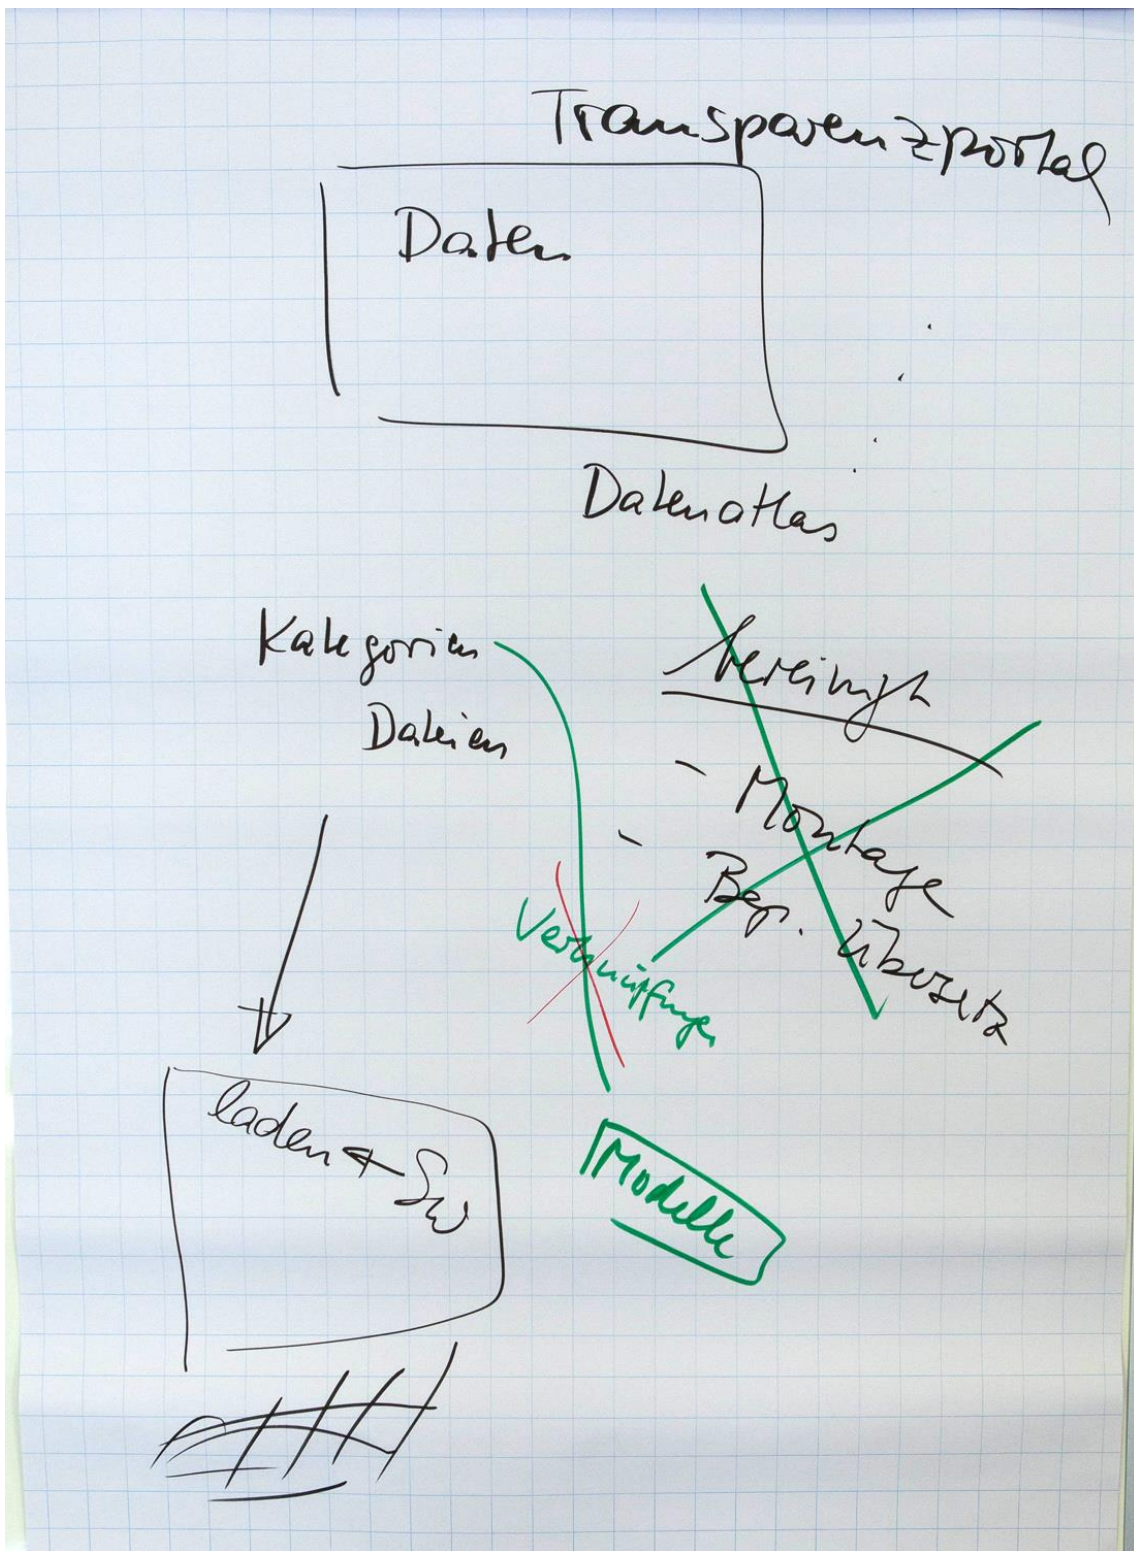 Transparenzportal
Daten
Datenatlas
Kategorien
Dateien
- Montage
- Beg. Übersetz
Verknüpfungen
laden + SW
Modelle